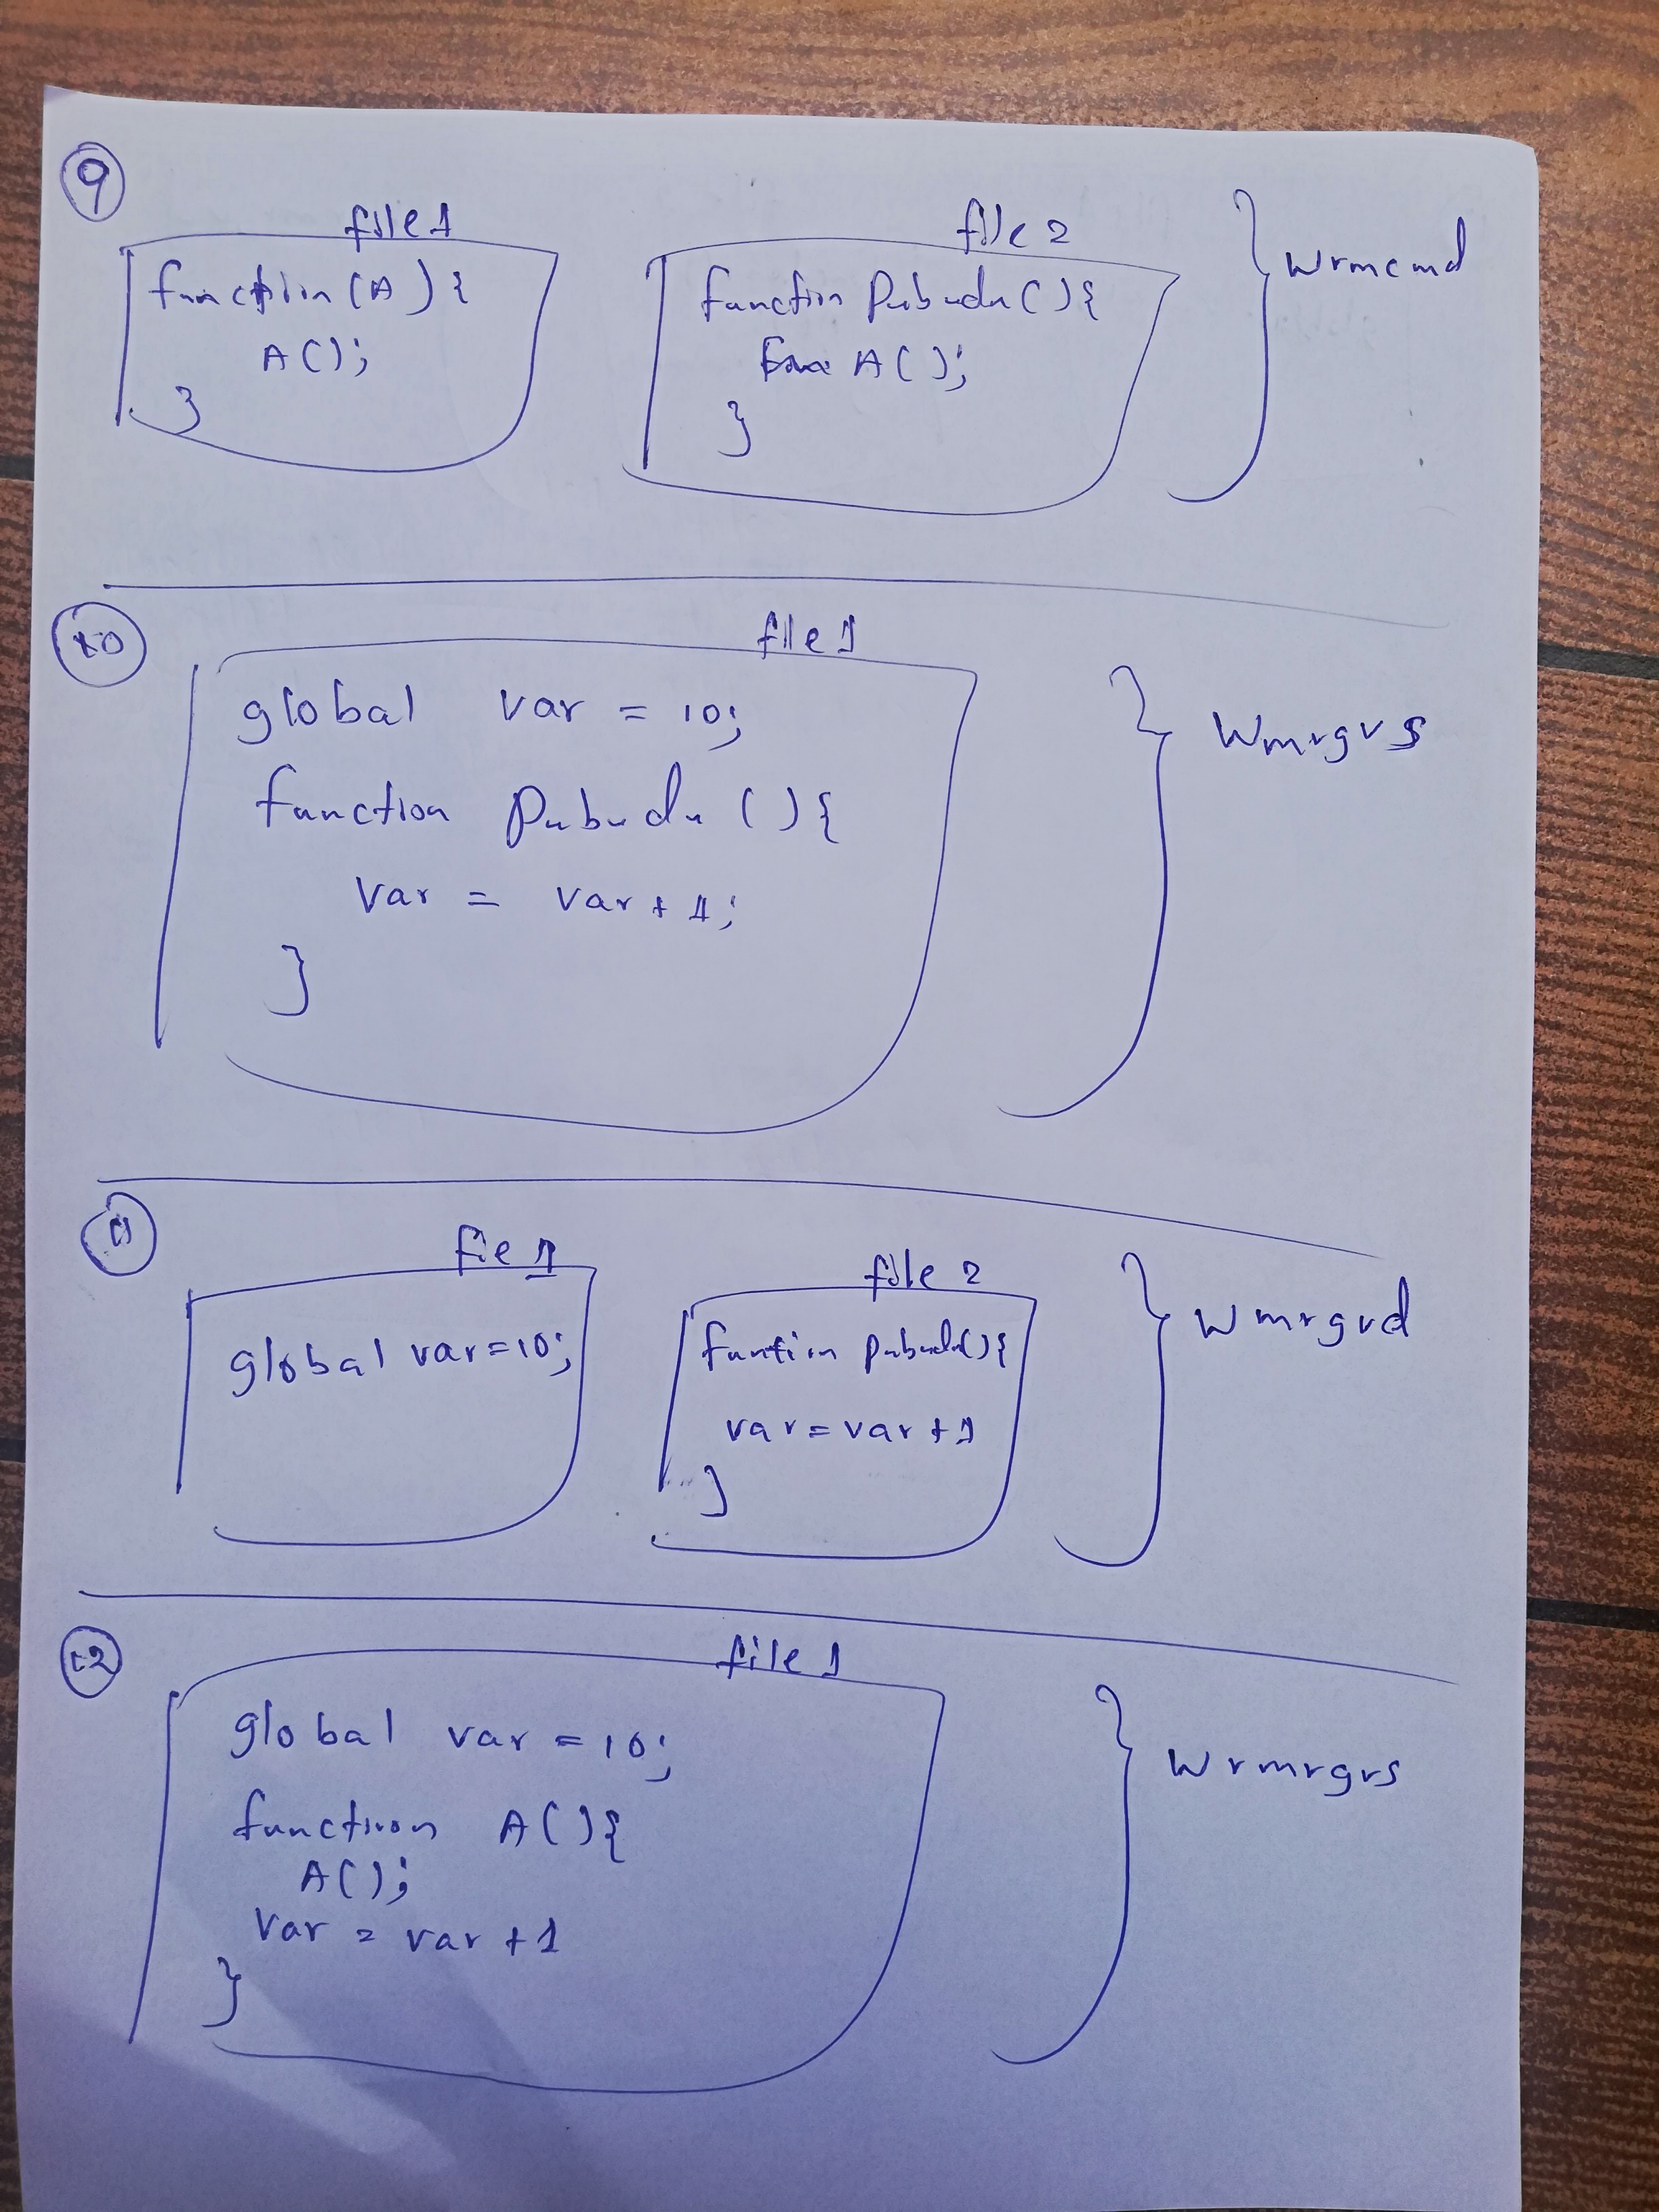 9
file 1
function (A) {
A();
}
file 2
function Pubudu () {
A();
}
Wrmcmd
10
file 1
global var = 10;
function Pubudu () {
var = var + 1;
}
Wmrgvs
11
fie 1
global var = 10;
file 2
funtion pubudu() {
var = var + 1
}
Wmrgvd
12
file 1
global var = 10;
function A() {
A();
var = var + 1
}
Wrmrgvs